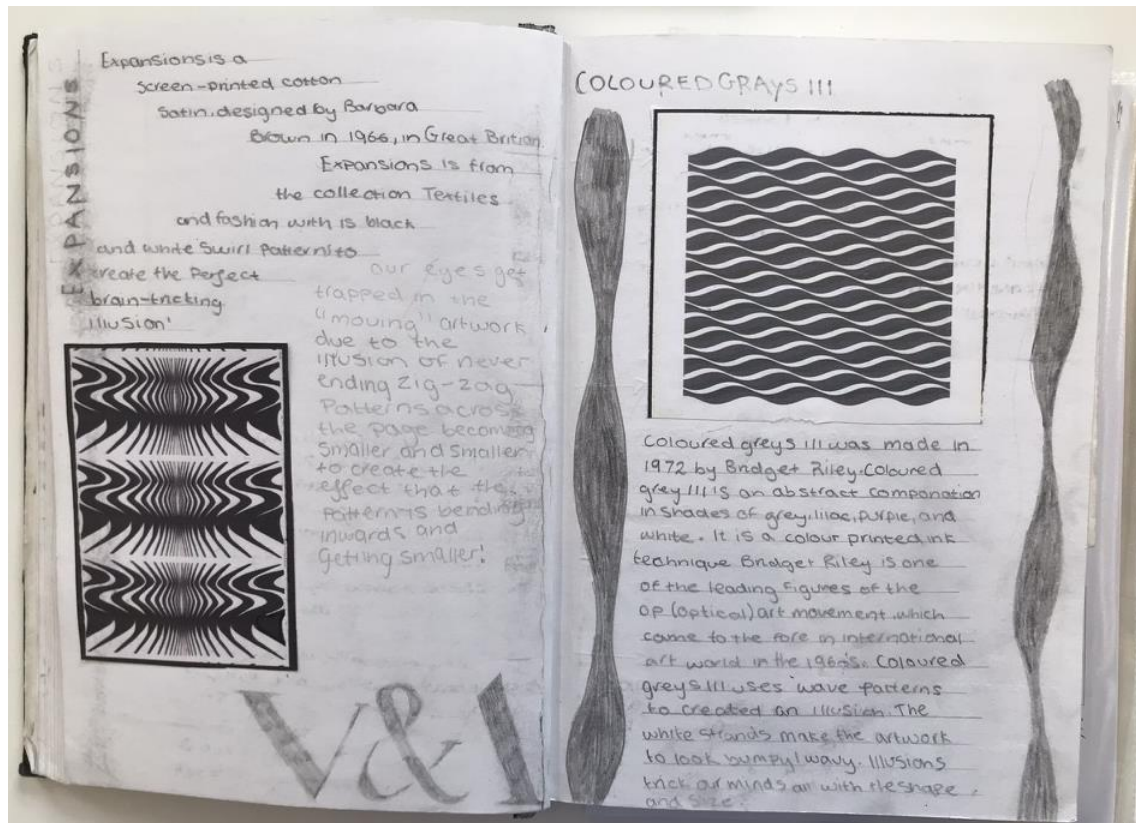 EXPANSIONS
Expansions is a
screen-printed cotton
Satin, designed by Barbara
Brown in 1966, in Great Brition.
Expansions is from
the collection Textiles
and fashion with is black
and white Swirl Patterns to
create the Perfect
brain-tricking
illusion'
our eyes get
trapped in the
"moving" artwork
due to the
illusion of never
ending Zig-zag
Patterns across
the page becoming
Smaller and Smaller
to create the
effect that the
Pattern is bending
inwards and
Getting smaller!
V&A
COLOURED GRAYS III
Coloured greys III was made in
1972 by Bridget Riley. Coloured
grey III is an abstract companation
in shades of grey, lilac, purple, and
white. It is a colour printed ink
technique Bridget Riley is one
of the leading figures of the
op (optical) art movement, which
came to the fore in international
art world in the 1960's. Coloured
greys III uses wave patterns
to created an illusion. The
white strands make the artwork
to look bumpy/wavy. Illusions
trick our minds with the shape
and Size.